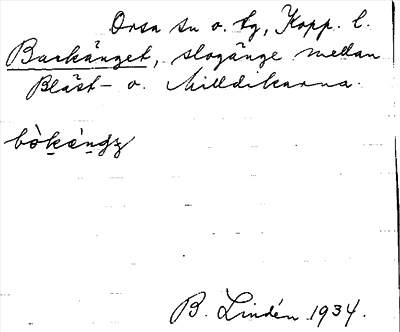 Orsa sn o. tg, Kopp. l.
Backänget, slogänge mellan
Bläst- o. Milldikarna.
bòkǽngg
B. Lindén 1934.